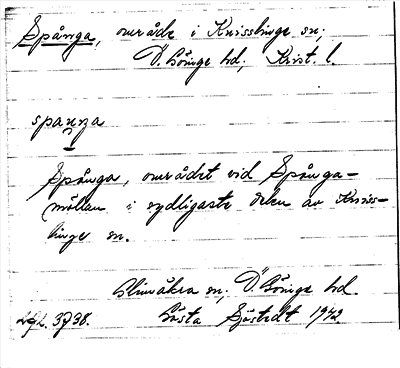 Spånga, område i Knisslinge sn,
Ö. Göinge hd, Krist. l.
spaŋa
Spånga, området vid Spånga-
möllan i sydligaste delen av Kniss-
linge sn.
Glimåkra sn, Ö. Göinge hd.
3738. Gösta Sjöstedt 1942